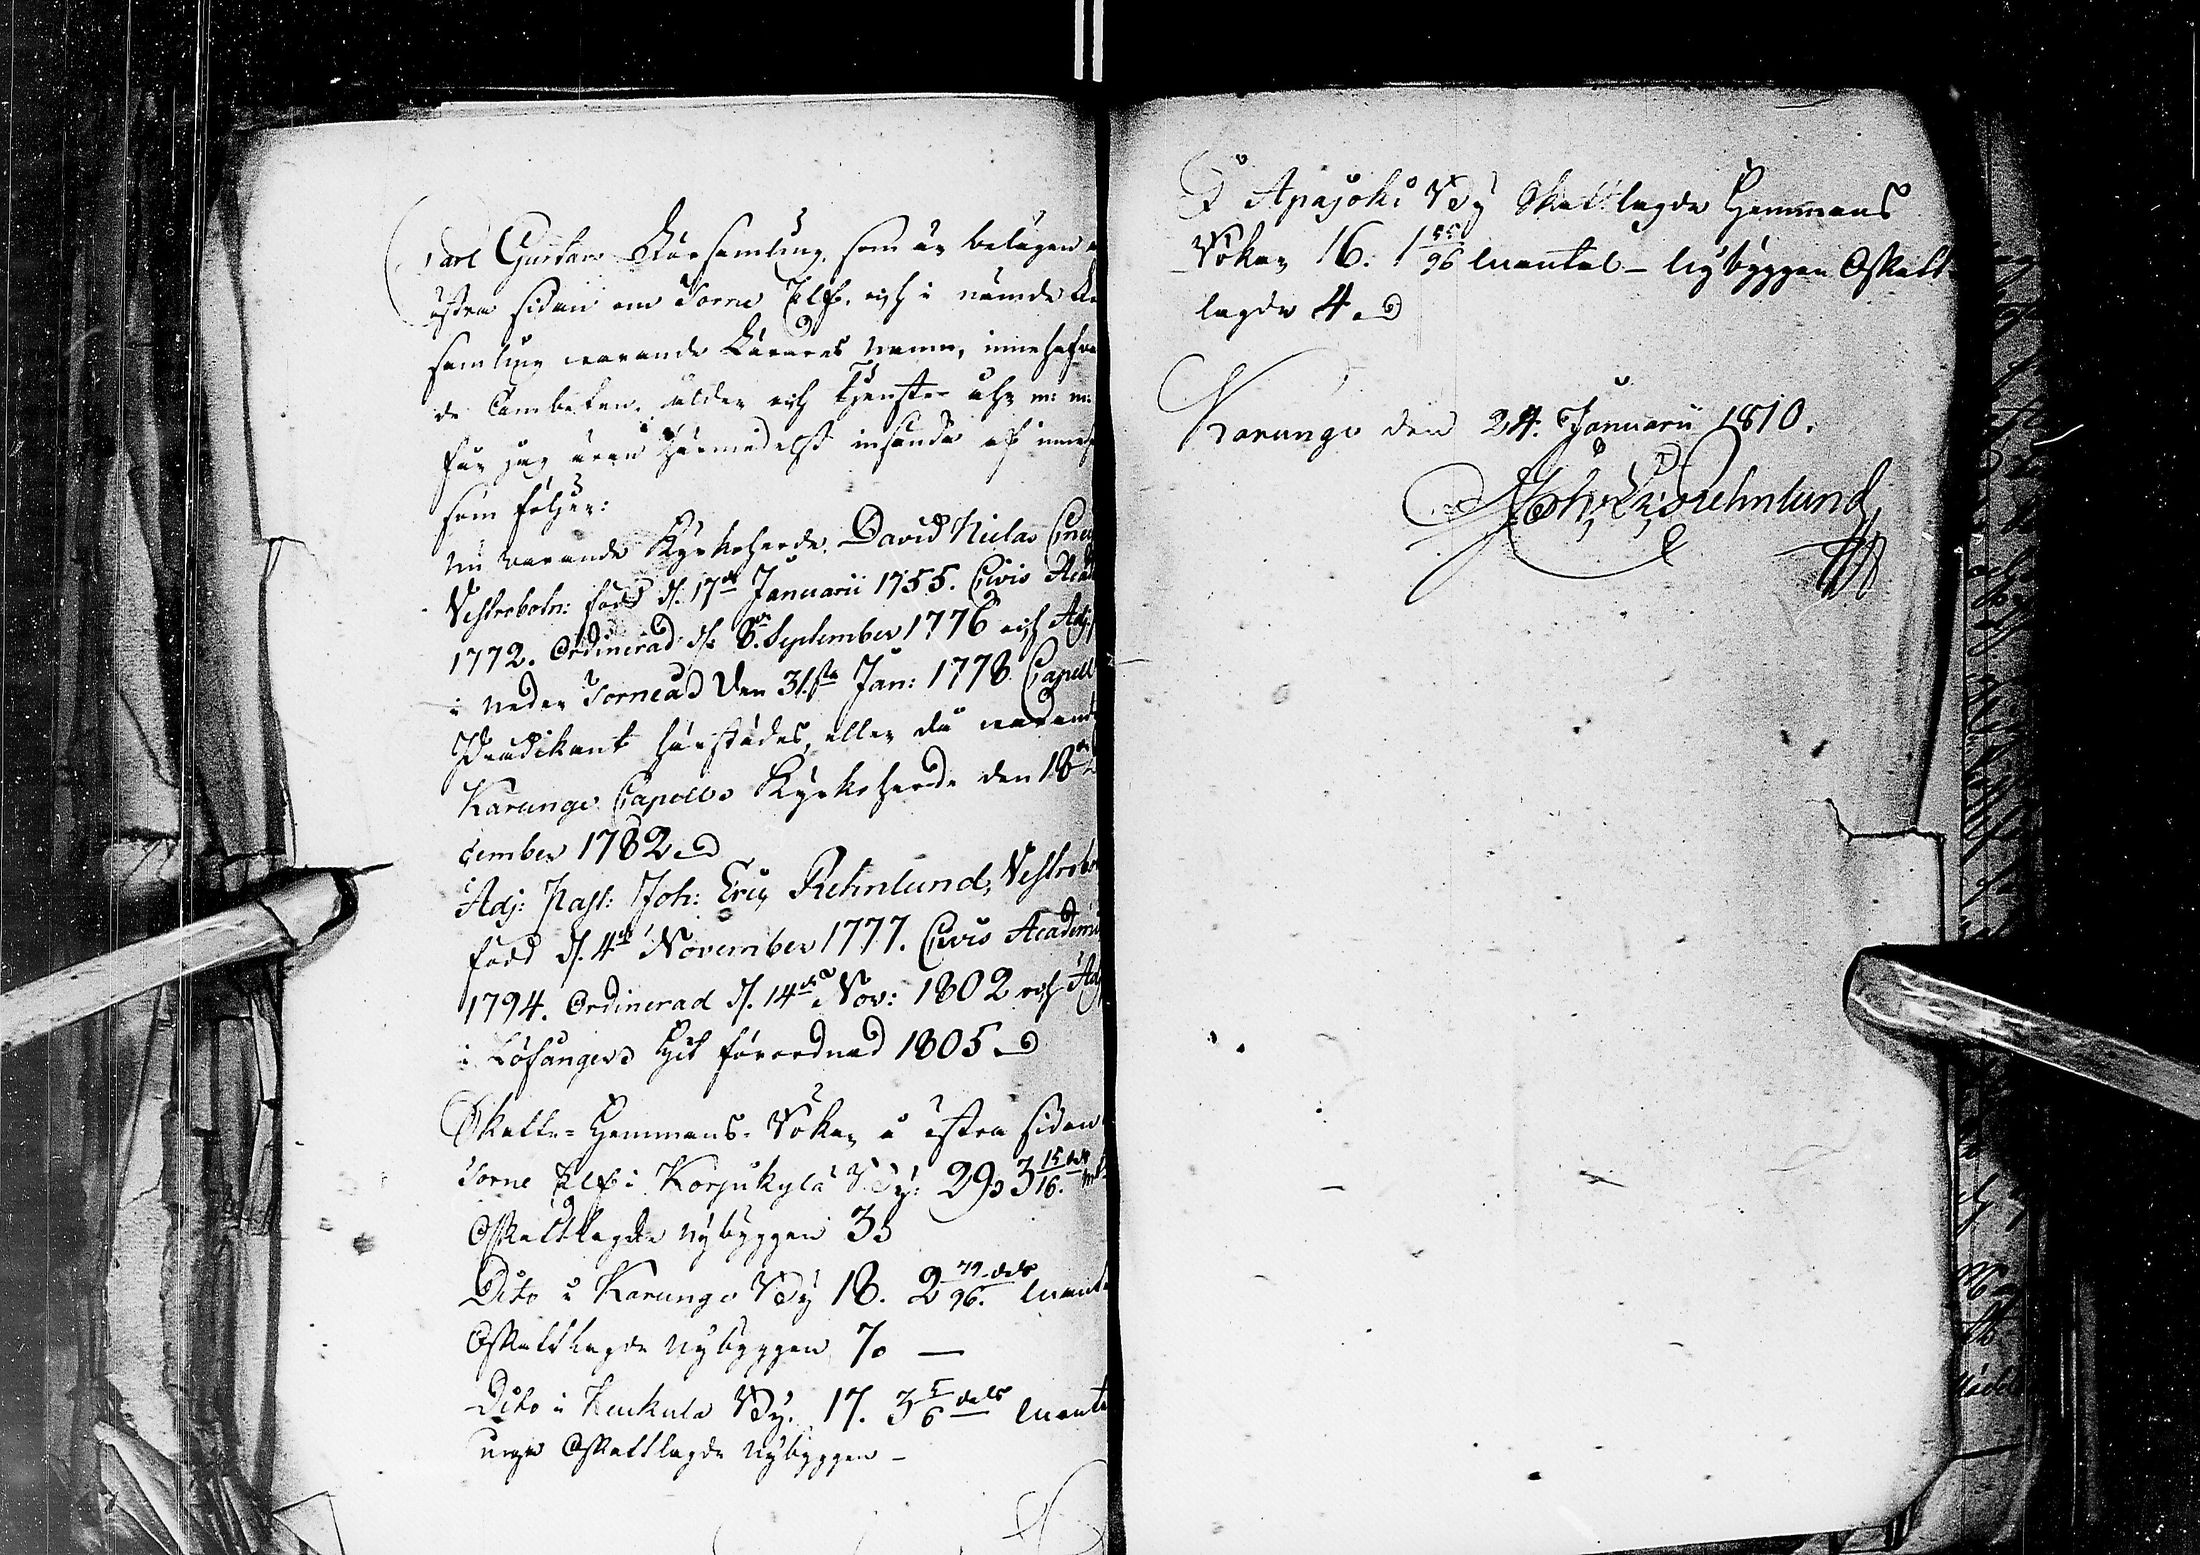 Carl Gustafs Församling, som är belägen
östra sidan om Torne Elf. och i nämde
samling warande Lärares namn, innehafwa
de Embeten, ålder och tjenste åhr m: m:
får jag äran härmedelst insända af
som följer:
Nu warande Kyrkoherde David Niclas
Vestrobotn: född d. 17de Januarii 1755. Civis Acad
1772. Ordinerad d. 8de September 1776 och Adj
i Neder Torneå d den 31sta Jan: 1778 Capell
Prædikant härstädes, eller då warande
Karungi Capells Kyrkoherde den 18de
cember 1782
Adj: Past: Joh: Eric Rehnlund, Vestrobo
född d. 4de November 1777. Civis Academi
1794. Ordinerad d. 14de Nov: 1802 och Adj
i Löfånger Hit förordnad 1805
Skatte-Hemmans-Röken å östra sidan
Torne Elf i Korpukylä By: 29, 3 15/16 dels
Oskattlagda nybyggen 3
Dito i Karungi By 18. 2 79/96 dels mant
Oskattlagde Nybyggen 7. —
Dito i Kuckula By. 17. 3 5/6 dels mant
inga Oskattlagde Nybyggen —
I Apajoki By Skattlagde Hemmans
Röken 16. 1 55/96 mantal - Nybyggen Oskatt
lagde 4.
Karungi den 24. Januarii 1810.
Joh. E. Rehnlund